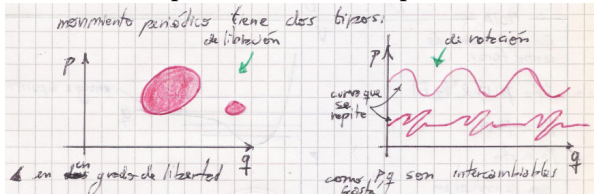 movimiento periódico tiene dos tipos:
de libración
de rotación
p
p
curva que
se
repite
q
q
en un grado de libertad
como p, q son intercambiables